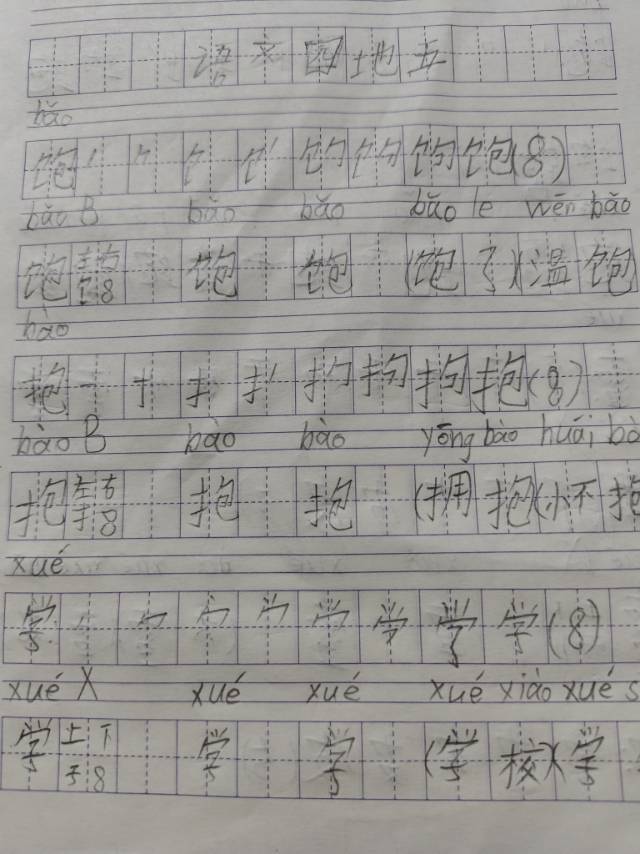 语文园地五
bǎo
饱 丿 饣 饱(8)
bǎo B bǎo bǎo bǎo le wēn bǎo
饱 左右 饣8 饱 饱 (饱了)(温饱
bào
抱 一 扌 扌 抱(8)
bào B bào bào yōng bào huái bà
抱 左右 扌8 抱 抱 (拥抱)(怀抱
xué
学 学(8)
xué X xué xué xué xiào xué s
学 上下 子8 学 学 (学校)(学